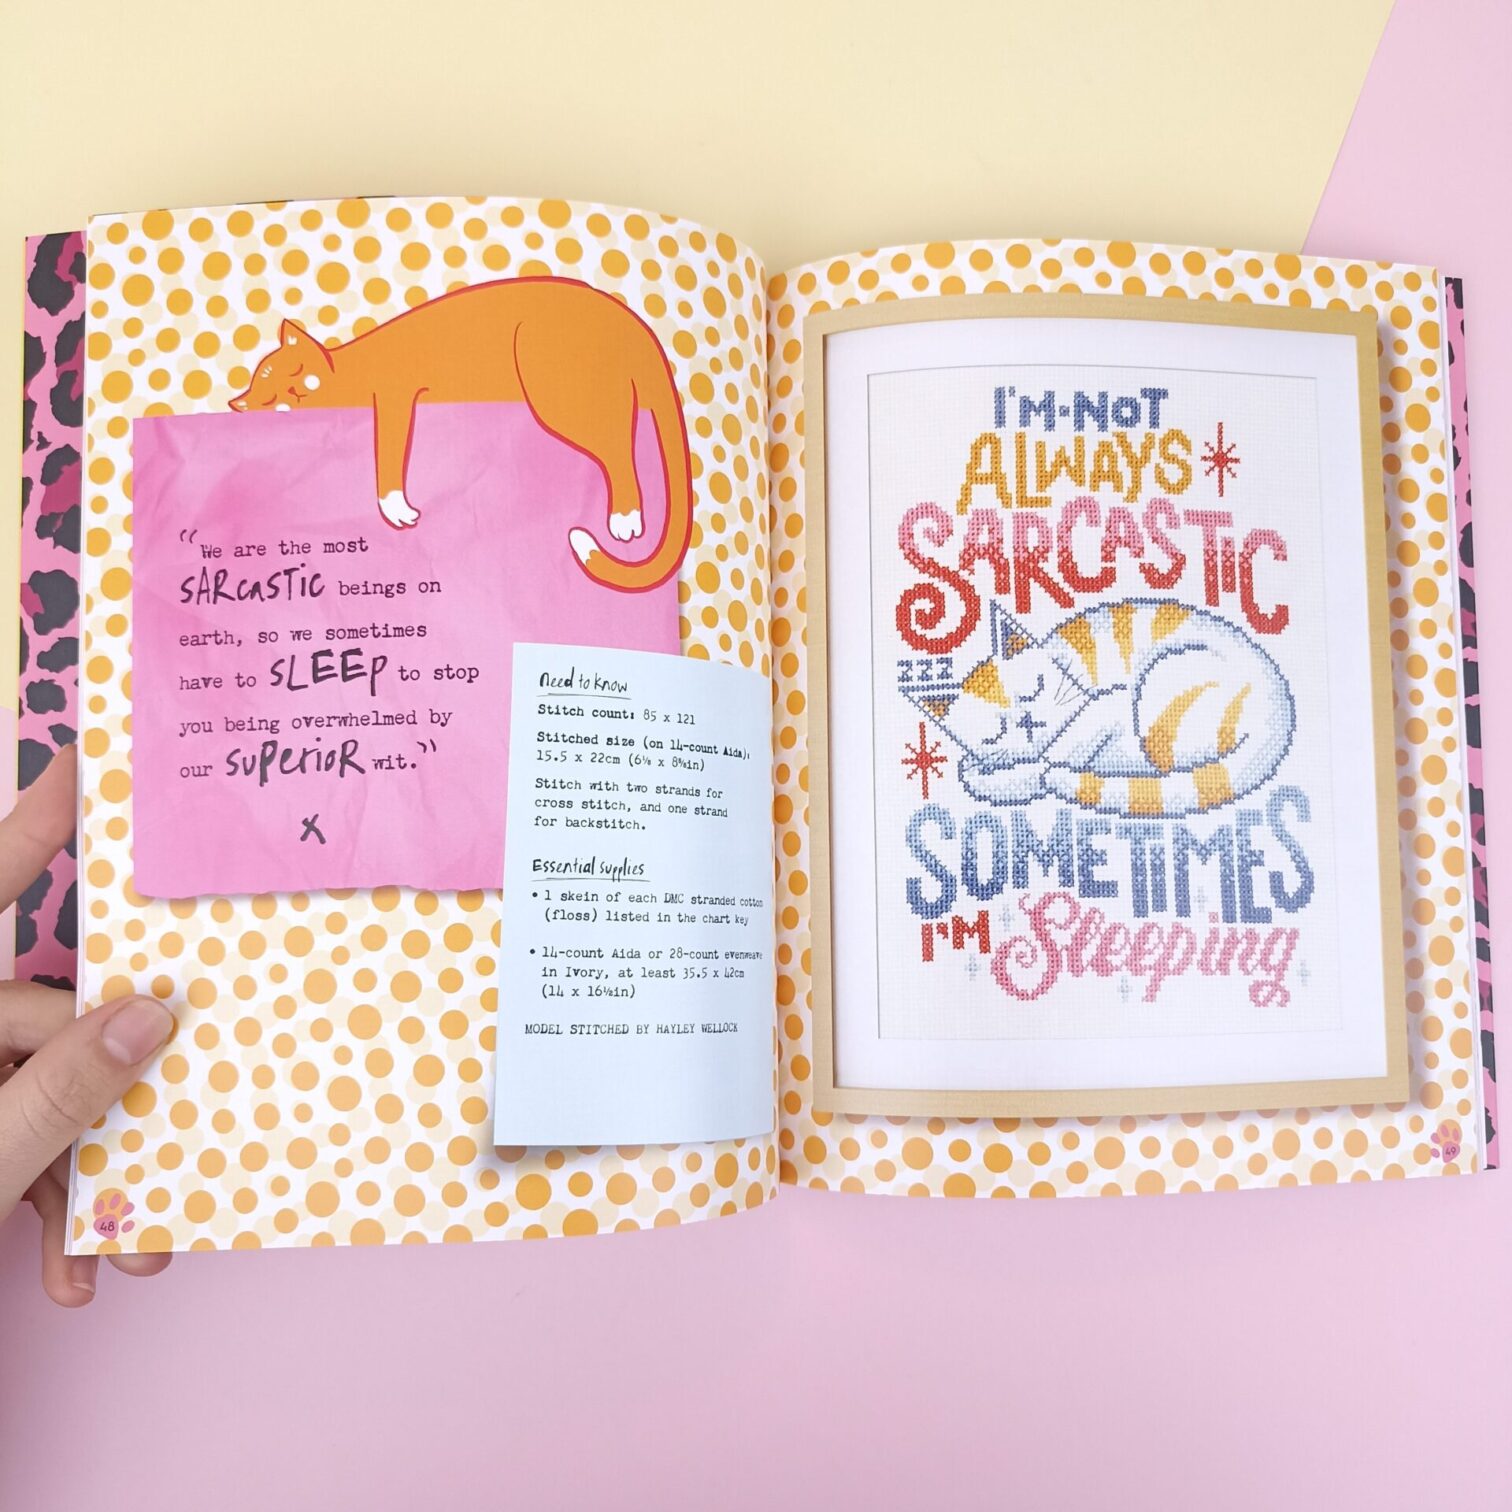 “We are the most
SARCASTIC beings on
earth, so we sometimes
have to SLEEP to stop
you being overwhelmed by
our SUPERIOR wit.”
X
Need to know
Stitch count: 85 x 121
Stitched size (on 14-count Aida):
15.5 x 22cm (6⅛ x 8⅝in)
Stitch with two strands for
cross stitch, and one strand
for backstitch.
Essential supplies
• 1 skein of each DMC stranded cotton
(floss) listed in the chart key
• 14-count Aida or 28-count evenweave
in Ivory, at least 35.5 x 42cm
(14 x 16½in)
MODEL STITCHED BY HAYLEY WELLOCK
48
I'M·NOT
ALWAYS
SARCASTIC
ZZZ
SOMETIMES
I'M Sleeping
49